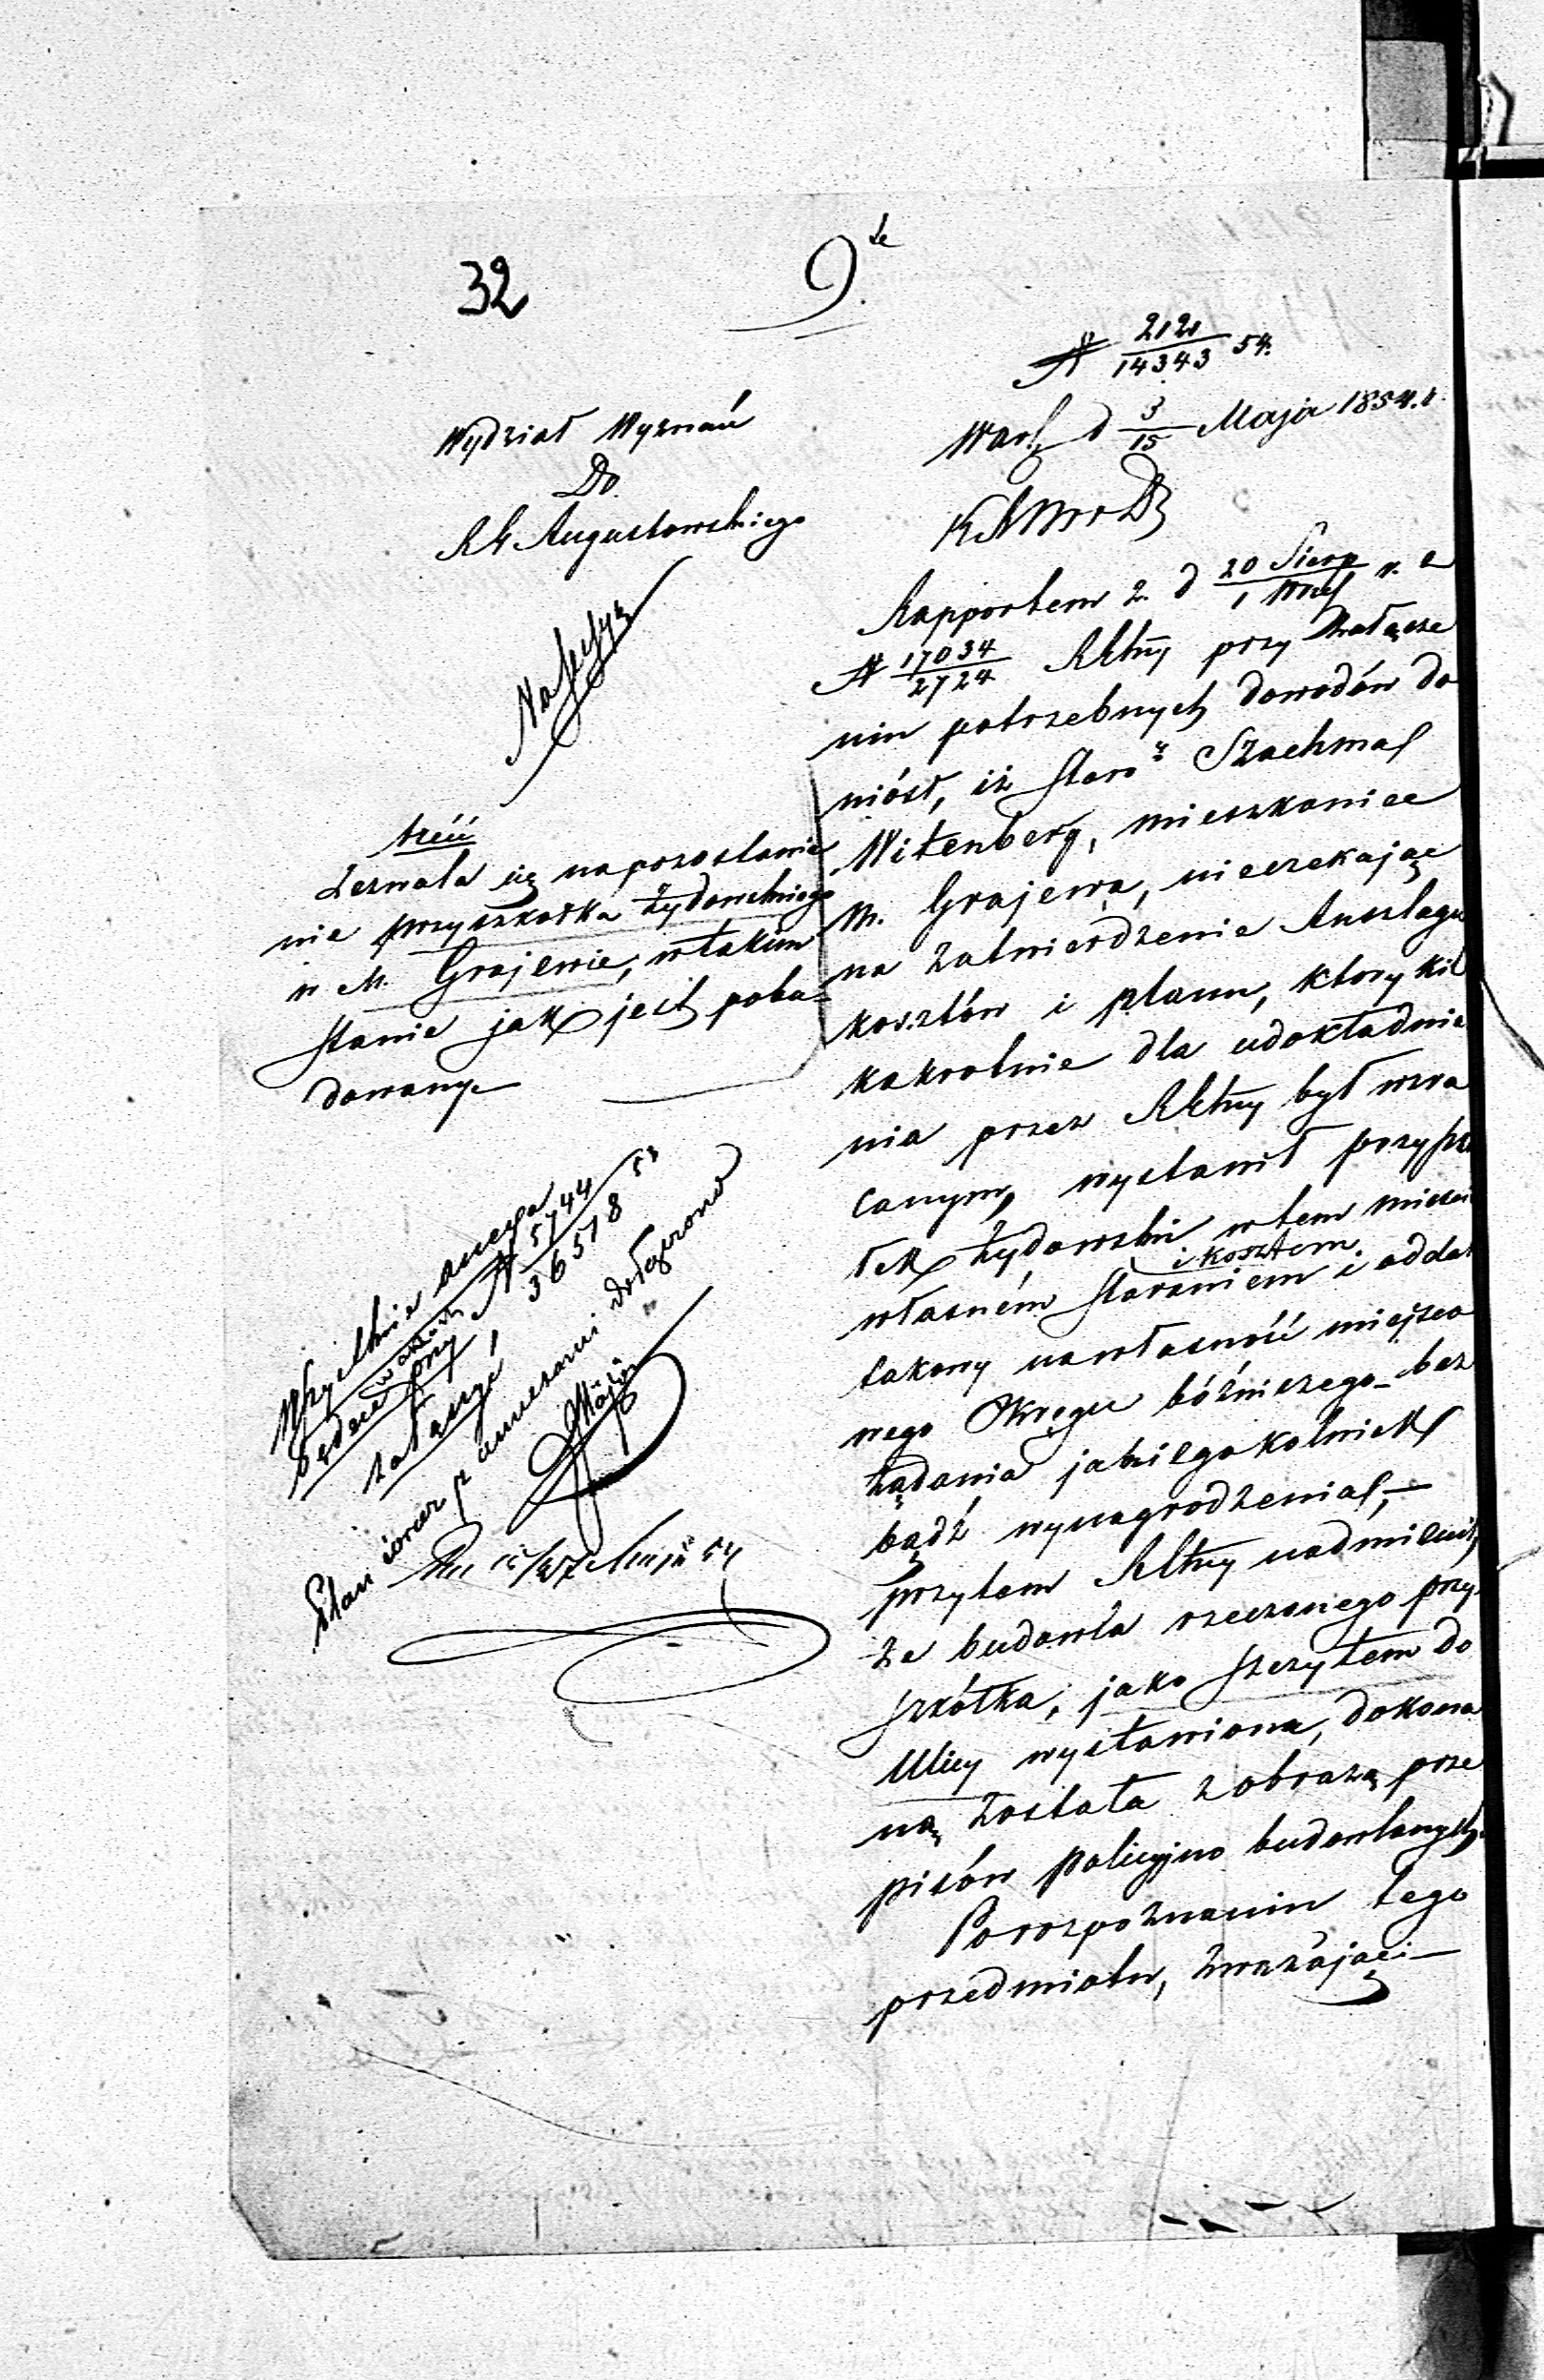 32
9
№ 212/14343 54.
Wydział Wyznań
Do
RG. Augustowskiego
Wars. d 3/15 Maja 1854. r.
Rapportem z d 20 Sierp/1 Wrześ r. z
№ 17034/2724 przy załącze
niu potrzebnych dowodów do
niósł, iż Staro: Szachma
Witenberg, mieszkaniec
M. Grajewa, nieczekając
na zatwierdzenie Anszlagu
kosztów i planu, ktory kil
kakrotnie dla udokładnie
nia przez był zwra
canym, wystawił przyszk
łek Żydowski w tem mieści
własném staraniem i kosztem i oddał
takowy na własność miejsco
wego Okręgu bóżniczego bez
żądania jakiegokolwiek
bądź wynagrodzenia,—
przytem nadmienił,
że budowla rzeczonego przy-
szkółka, jako szczytem do
Ulicy wystawiona, dokona
ną została z obrazą prze
pisów policyjno budowlanych.
Po rozpoznaniu tego
przedmiotu, zważając:—
treść
Zezwala się na pozostawie
nie przyszkółka Żydowskiego
w M. Grajewie, w takim
stanie jak jest pobu-
dowany.
Wszystkie annexa
będące przy № 5744/36578 53
załączyć,